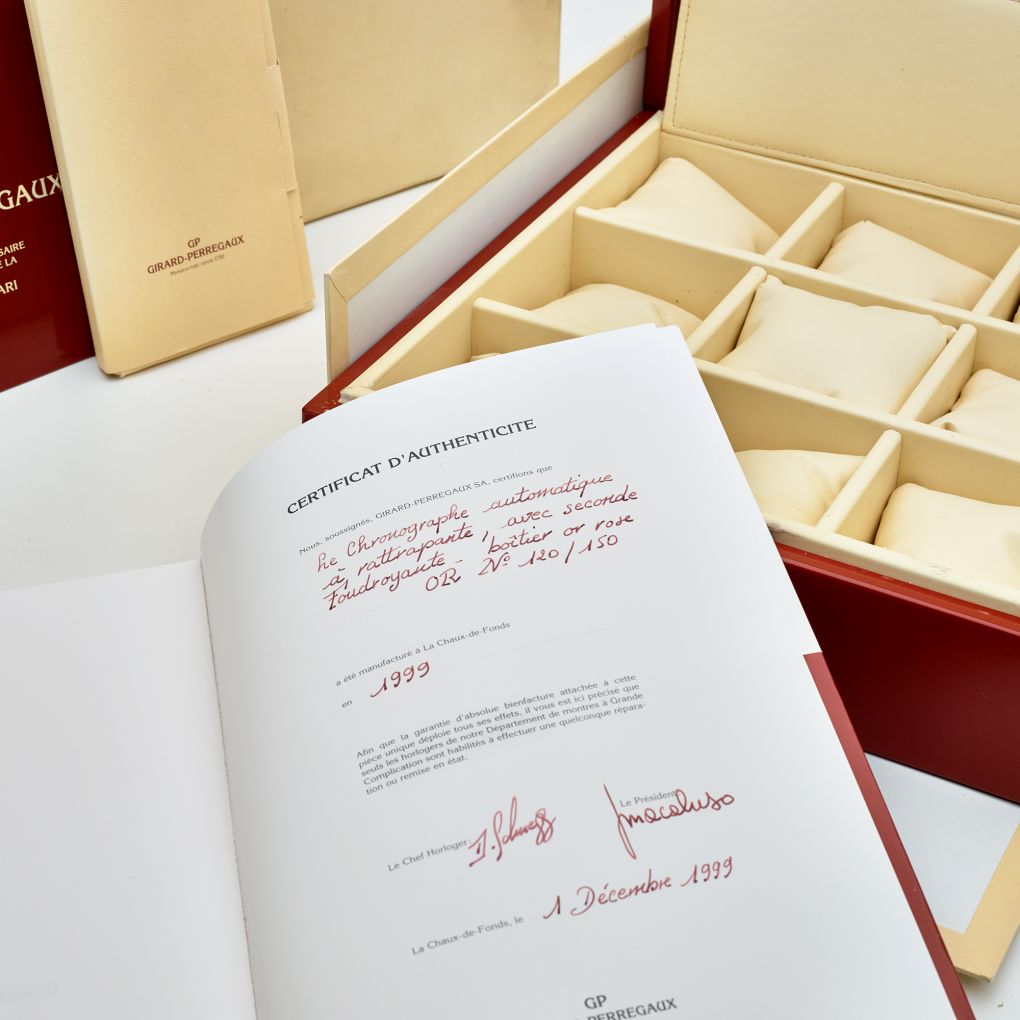 GAUX
SAIRE
E LA
ARI
GP
GIRARD-PERREGAUX
Manufacture depuis 1791
CERTIFICAT D'AUTHENTICITE
Nous, soussignés, GIRARD-PERREGAUX SA, certifions que
Le Chronographe automatique
à rattrapante, avec seconde
foudroyante - boîtier or rose
OR Nº 120/150
a été manufacturé à La Chaux-de-Fonds
en 1999
Afin que la garantie d'absolue bienfacture attachée à cette
pièce unique déploie tous ses effets, il vous est ici précisé que
seuls les horlogers de notre Département de montres à Grande
Complication sont habilités à effectuer une quelconque répara-
tion ou remise en état.
Le Président
Le Chef Horloger:
La Chaux-de-Fonds, le 1 Décembre 1999
GP
PERREGAUX